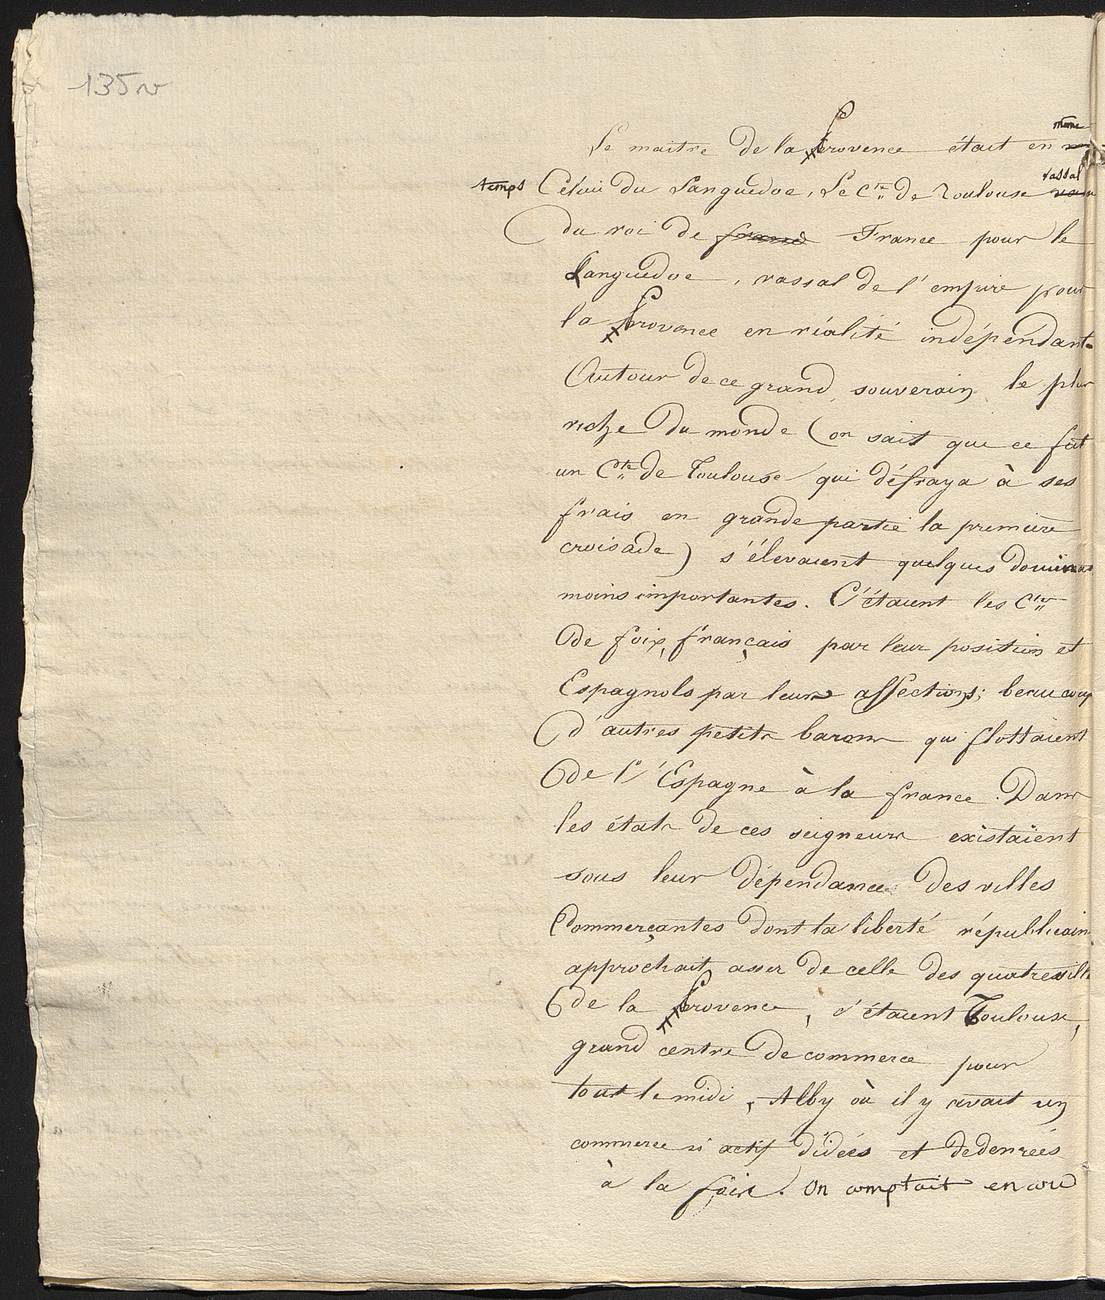 135 v
Le maître de la Provence était en même
temps Celui du Languedoc, Le Cte de Toulouse vassal
du roi de France pour le
Languedoc, vassal de l'empire pour
la Provence en réalité indépendant.
Autour de ce grand souverain le plus
riche du monde (on sait que ce fut
un Cte de Toulouse qui défraya à ses
frais en grande partie la première
croisade) s'élevaient quelques
moins importantes. C'étaient les Ctes
de foix, français par leur position et
Espagnols par leurs affections; beaucoup
d'autres petits barons qui flottaient
de l'Espagne à la france. Dans
les états de ces seigneurs existaient
sous leur dépendance des villes
Commerçantes dont la liberté républicaine
approchait assez de celle des quatre villes
de la Provence, c'étaient Toulouse,
grand centre de commerce pour
tout le midi, Alby où il y avait un
commerce si actif d'idées et de denrées
à la fois. On comptait encore